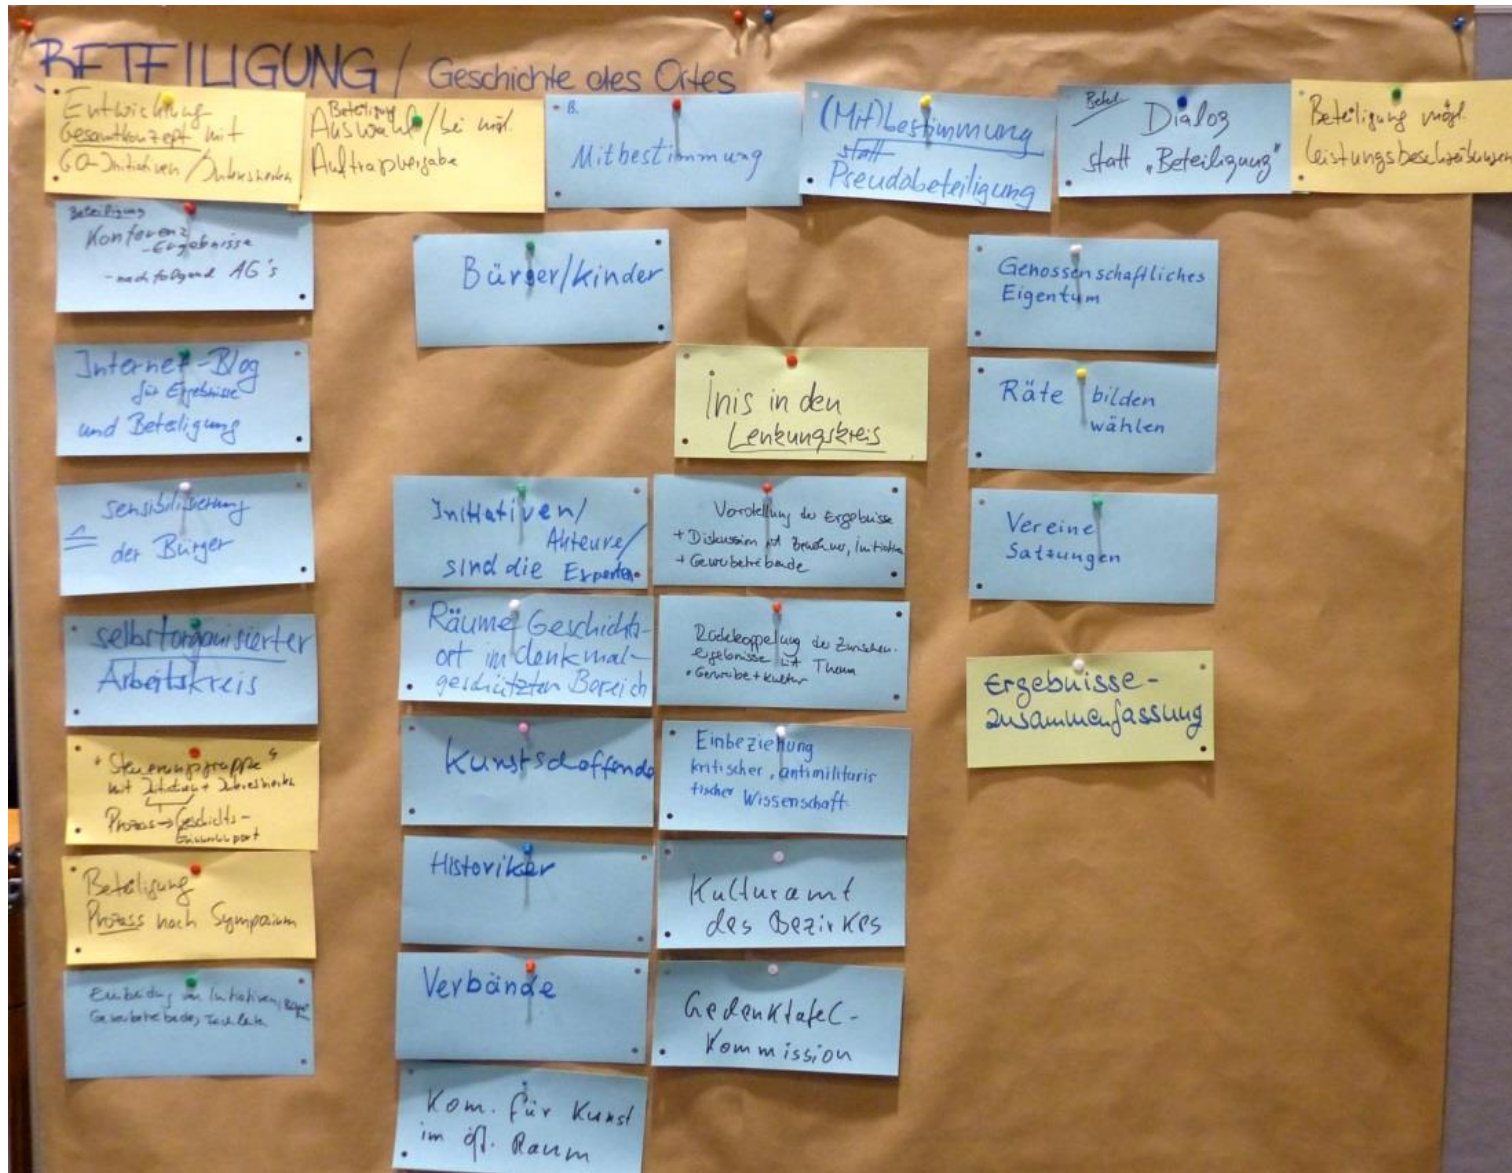 BETEILIGUNG / Geschichte des Ortes
Entwicklung
Gesamtkonzept mit
GO-Initiativen / Interessierten
Beteiligung
Auswahl / bei mögl.
Auftragsvergabe
B.
Mitbestimmung
(Mit)bestimmung
statt
Pseudobeteiligung
Beteil.
Dialog
statt „Beteiligung"
Beteiligung mögl.
Leistungsbeschreibungen
Beteiligung
Konferenz
- Ergebnisse
- nachfolgend AG's
Internet-Blog
für Ergebnisse
und Beteiligung
≙ sensibilisierung
der Bürger
selbstorganisierter
Arbeitskreis
"Steuerungsgruppe"
mit Initiativen + Interessierten
Prozess → Geschichts-
Beteiligung
Prozess nach Symposium
Einbindung von Initiativen, Bürger
Gewerbetreibende,
Bürger/Kinder
Initiativen/
Akteure/
sind die Experten
Räume Geschichts-
ort im denkmal-
geschützten Bereich
Kunstschaffende
Historiker
Verbände
Kom. für Kunst
im öff. Raum
Inis in den
Lenkungskreis
Vorstellung der Ergebnisse
+ Diskussion mit Bewohner, Initiativen
+ Gewerbetreibende
Rückkoppelung der Zwischen-
ergebnisse mit Thema
• Gewerbe + Kultur
Einbeziehung
kritischer, antimilitaris
tischer Wissenschaft
Kulturamt
des Bezirkes
Gedenktafel-
Kommission
Genossenschaftliches
Eigentum
Räte bilden
wählen
Vereine
Satzungen
Ergebnisse-
zusammenfassung